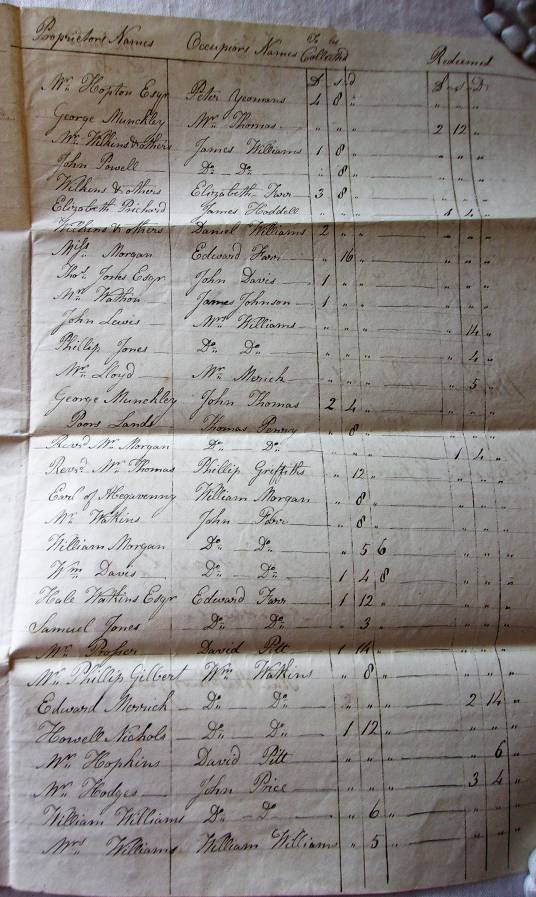 Proprietors Names Occupiors Names To be Collected Redeemed
£ s d £ s D
Mr. Hopton Esqr Peter Yeomans 4 8 " " " "
George Munckley Mr. Thomas " " " 2 12 "
Mr. Wilkins & others James Williams 1 8 " " " "
John Powell Do. Do. " 8 " " " "
Wilkins & others Elizabeth Farr 3 8 " " " "
Elizabeth Prichard James Hoddell " " " 4 "
Wilkins & others Daniel Williams 2 " " " " "
Miss Morgan Edward Farr " 16 " " " "
Thos. Jones Esqr John Davis 1 " " " " "
Mr. Wathon James Johnson 1 " " " " "
John Lewis Mrs. Williams " " " " 14 "
Phillip Jones Do. Do. " " " " 4 "
Mr. Lloyd Mr. Merick " " " " 5 "
George Munckley John Thomas 2 4 " " " "
Poors Lands Thomas Penry " 8 " " " "
Revrd. Mr. Morgan Do. Do. " " " 1 4 "
Revrd. Mr. Thomas Phillip Griffiths " 12 " " " "
Earl of Abegavenny William Morgan " 8 " " " "
Mr. Watkins John Farr " 8 " " " "
William Morgan Do. Do. " 5 6 " " "
Wm. Davis Do. Do. 1 4 8 " " "
Hale Watkins Esqr Edward Farr 1 12 " " " "
Samuel Jones Do. Do. " 3 " " " "
Mr. Prosser David Pitt 1 14 " " " "
Mr. Phillip Gilbert Wm. Watkins " 8 " " " "
Edward Merrick Do. Do. " " " 2 14 "
Howell Nichols Do. Do. 1 12 " " " "
Mr. Hopkins David Pitt " " " " 6 "
Mr. Hodges John Price " " " 3 4 "
William Williams Do. Do. " 6 " " " "
Mrs. Williams William Williams " 5 " " " "